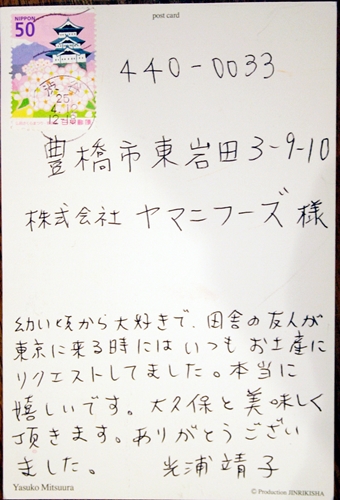 post card
NIPPON
50
25
12-18
日本郵便
440-0033
豊橋市東岩田3-9-10
株式会社 ヤマニフーズ様
幼い頃から大好きで、田舎の友人が
東京に来る時にはいつもお土産に
リクエストしてました。本当に
嬉しいです。大久保と美味しく
頂きます。ありがとうござい
ました。 光浦靖子
Yasuko Mitsuura
© Production JINRIKISHA